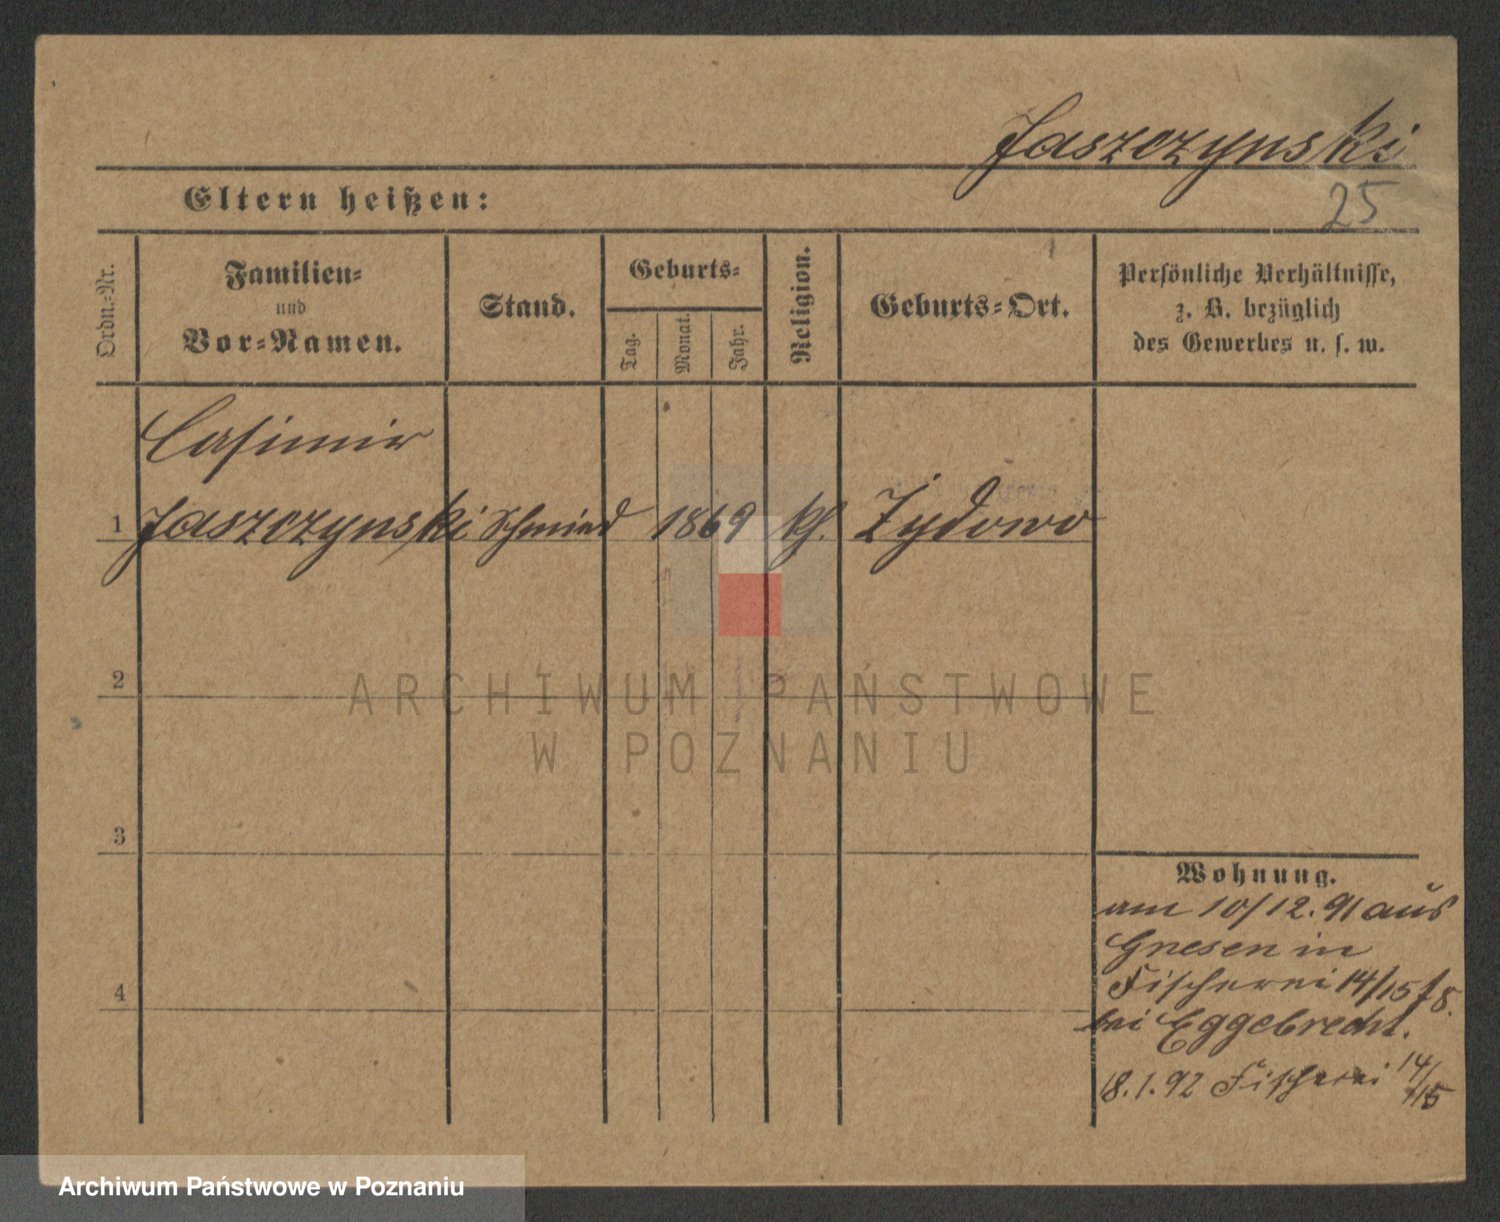 Jaszczynski
Eltern heißen:
25
Ordn.-Nr.
Familien-
und
Vor-Namen.
Stand.
Geburts-
Tag.
Monat.
Jahr.
Religion.
Geburts-Ort.
Persönliche Verhältnisse,
z. B. bezüglich
des Gewerbes u. s. w.
Casimir
1 Jaszczynski Schmied 1869 kh. Zydowo
2
ARCHIWUM PAŃSTWOWE
W POZNANIU
3
Wohnung.
am 10/12. 91 aus
Gnesen in
Fischerei 14/15
4
bei Eggebrecht.
18.1.92 Fischerei 14/15
Archiwum Państwowe w Poznaniu